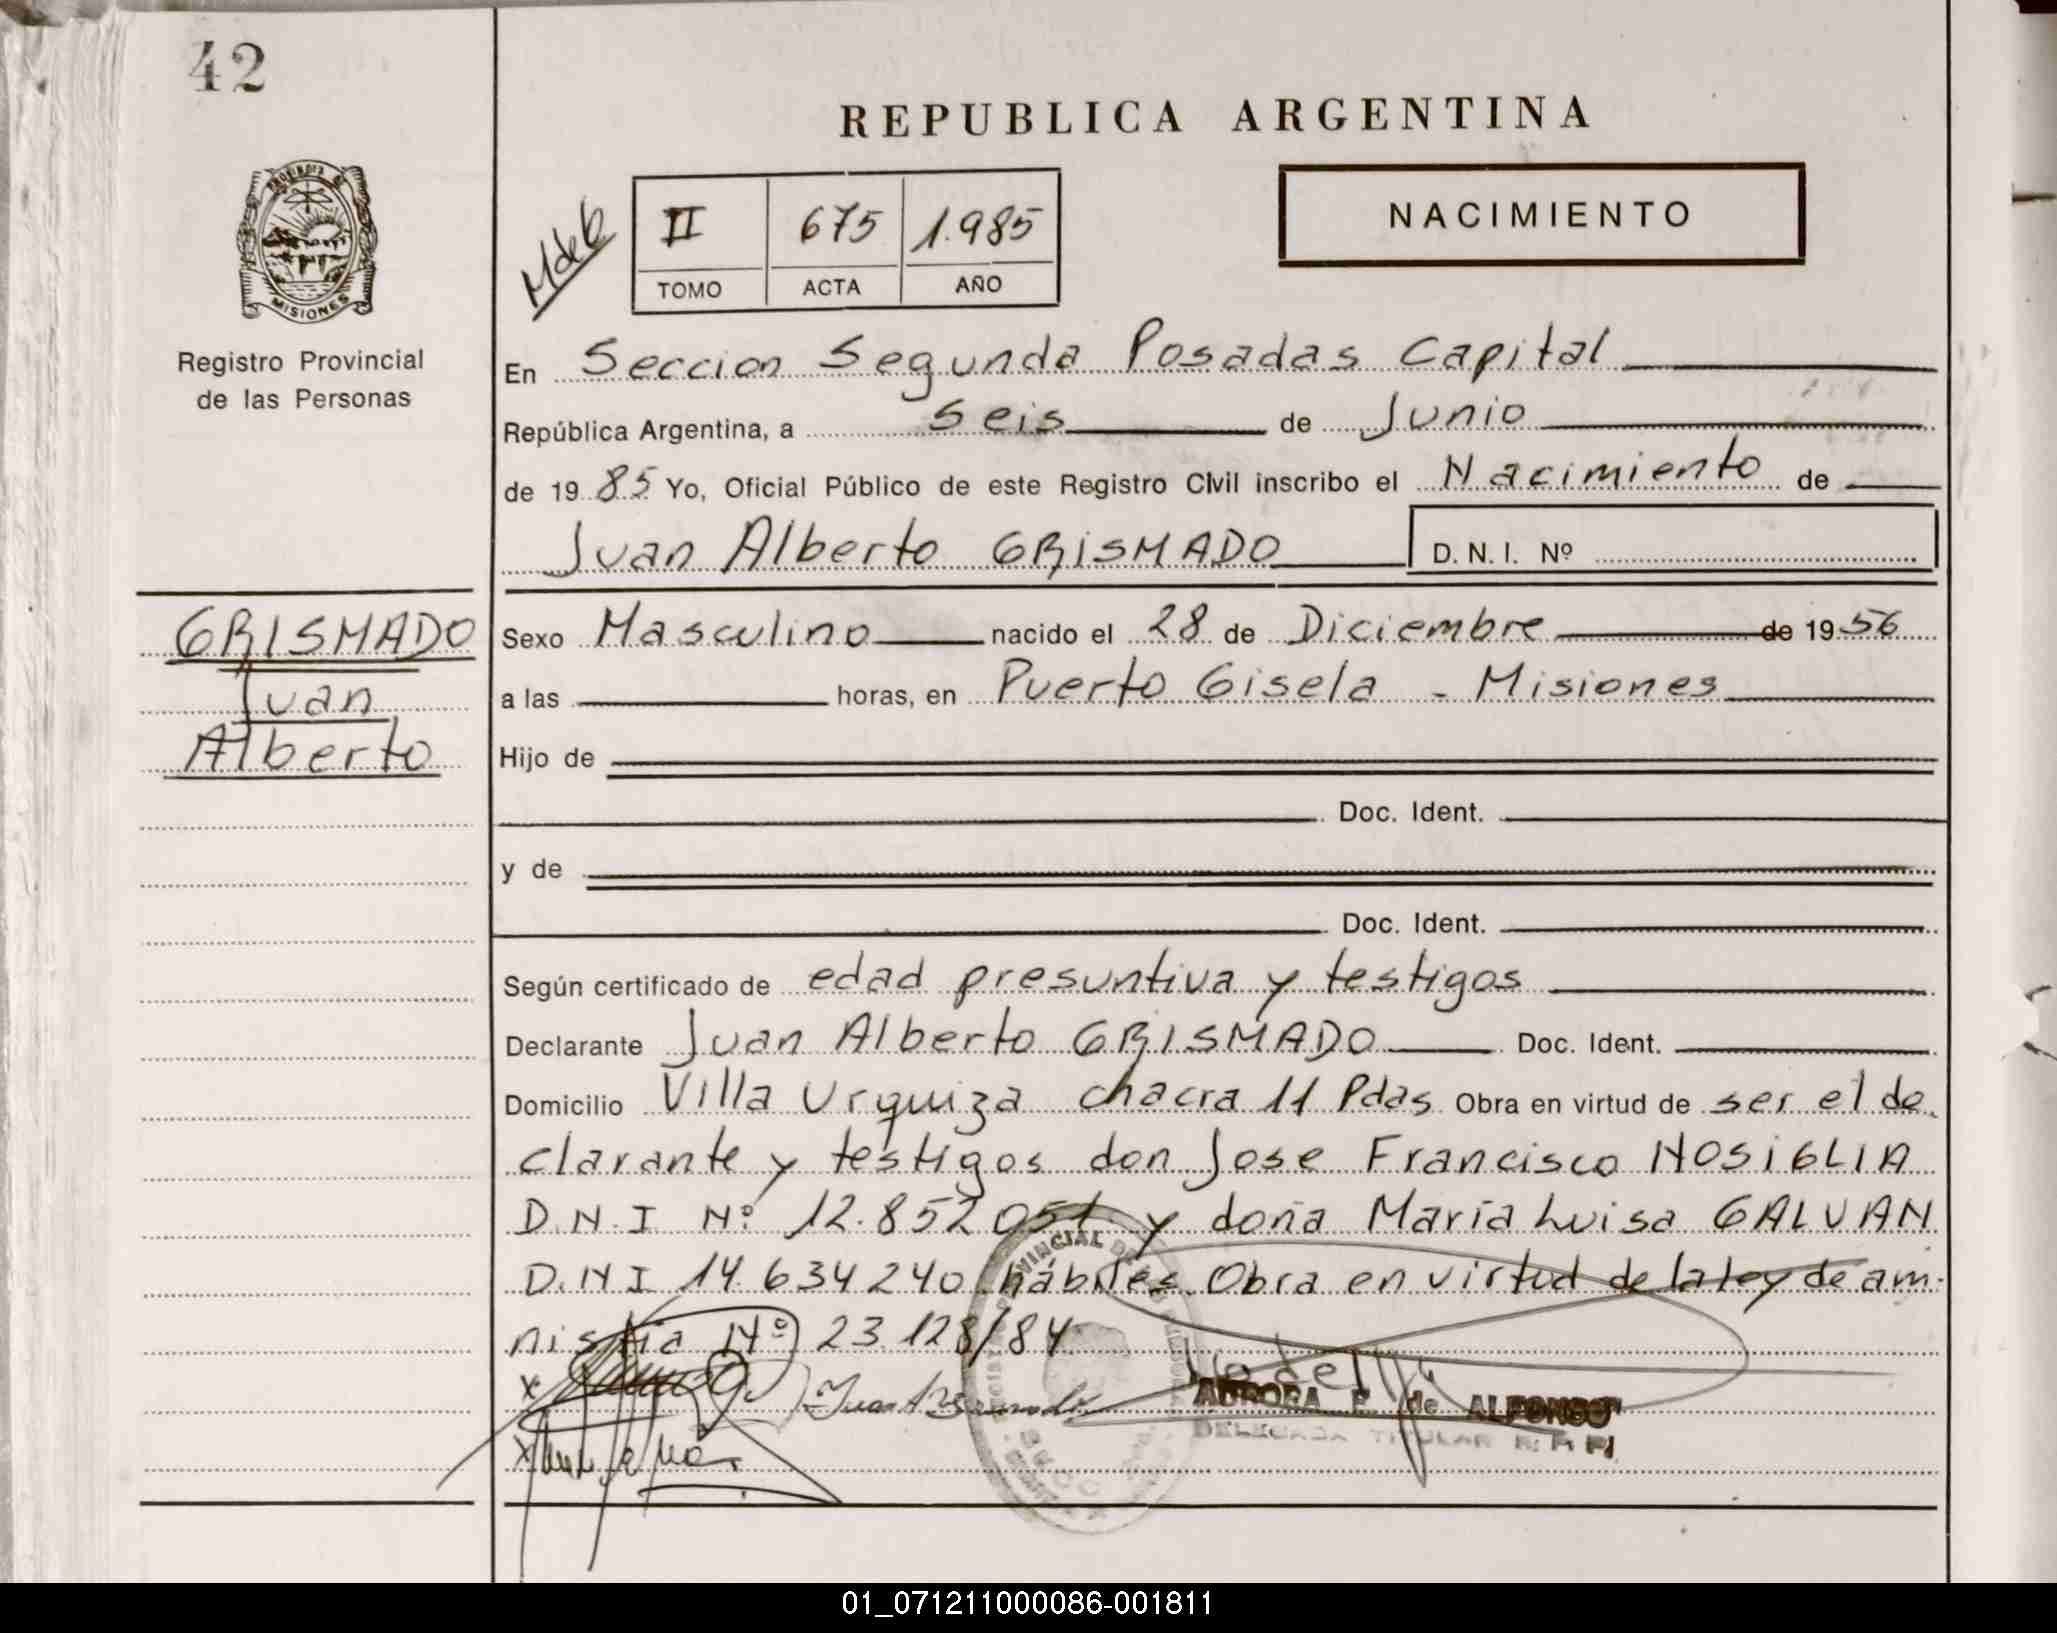 42
REPUBLICA ARGENTINA
PROVINCIA DE
MISIONES
Registro Provincial
de las Personas
II 675 1.985
TOMO ACTA AÑO
NACIMIENTO
En Seccion Segunda Posadas Capital
República Argentina, a Seis de Junio
de 1985 Yo, Oficial Público de este Registro Civil inscribo el Nacimiento de
Juan Alberto GRISMADO D.N.I. Nº
GRISMADO
Juan
Alberto
Sexo Masculino nacido el 28 de Diciembre de 1956
a las horas, en Puerto Gisela - Misiones
Hijo de
Doc. Ident.
y de
Doc. Ident.
Según certificado de edad presuntiva y testigos
Declarante Juan Alberto GRISMADO Doc. Ident.
Domicilio Villa Urquiza chacra 11 Pdas Obra en virtud de ser el de
clarante y testigos don Jose Francisco NOSIGLIA
D.N.I Nº 12.852051 y doña María Luisa GALVAN
D.N.I 14.634240 hábiles. Obra en virtud de la ley de am-
nistia Nº 23.128/84
AURORA E. de ALFONSO
DELEGADA TITULAR R.P.P.
01_071211000086-001811